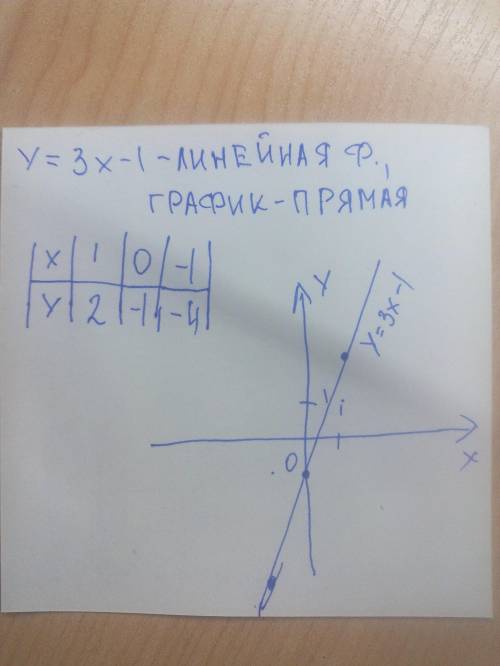 y = 3x - 1 - ЛИНЕЙНАЯ Ф.,
ГРАФИК - ПРЯМАЯ
| X | 1 | 0 | -1 |
| Y | 2 | -1 | -4 |
Y
y = 3x - 1
1
1
0
X